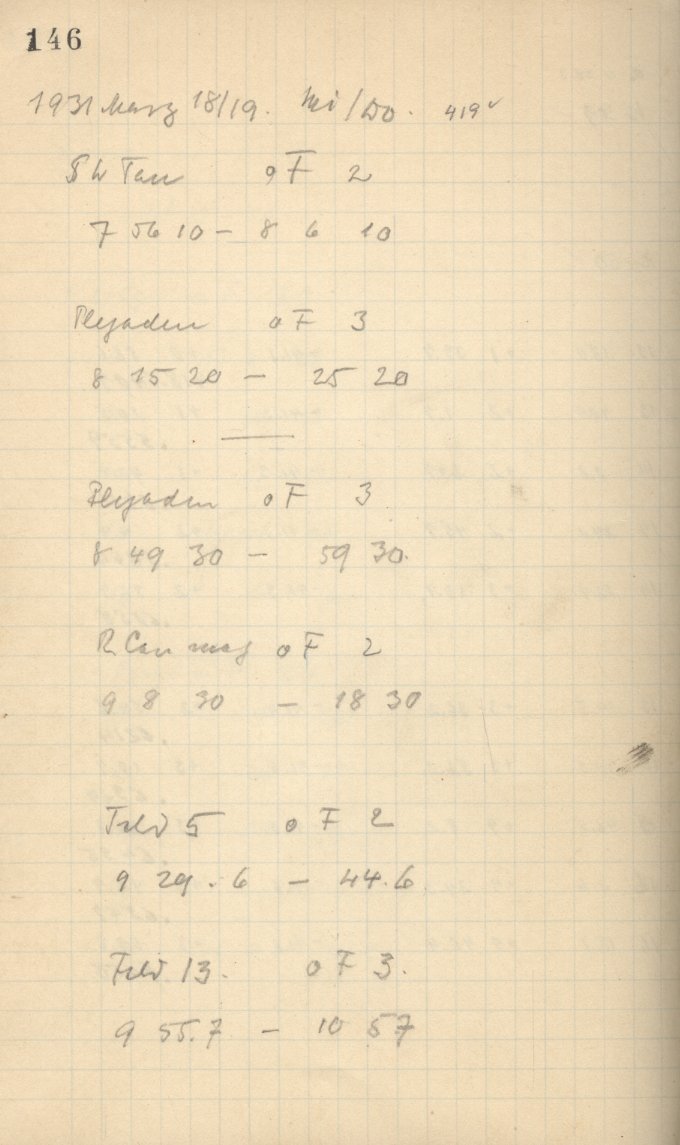 146
1931 März 18/19. Mi/Do. 419
Tau oF 2
7 56 10 – 8 6 10
Plejaden oF 3
8 15 20 – 25 20
Plejaden oF 3
8 49 30 – 59 30.
R Can maj oF 2
9 8 30 – 18 30
Feld 5 oF 2
9 29.6 – 44.6
Feld 13. oF 3.
9 55.7 – 10 57